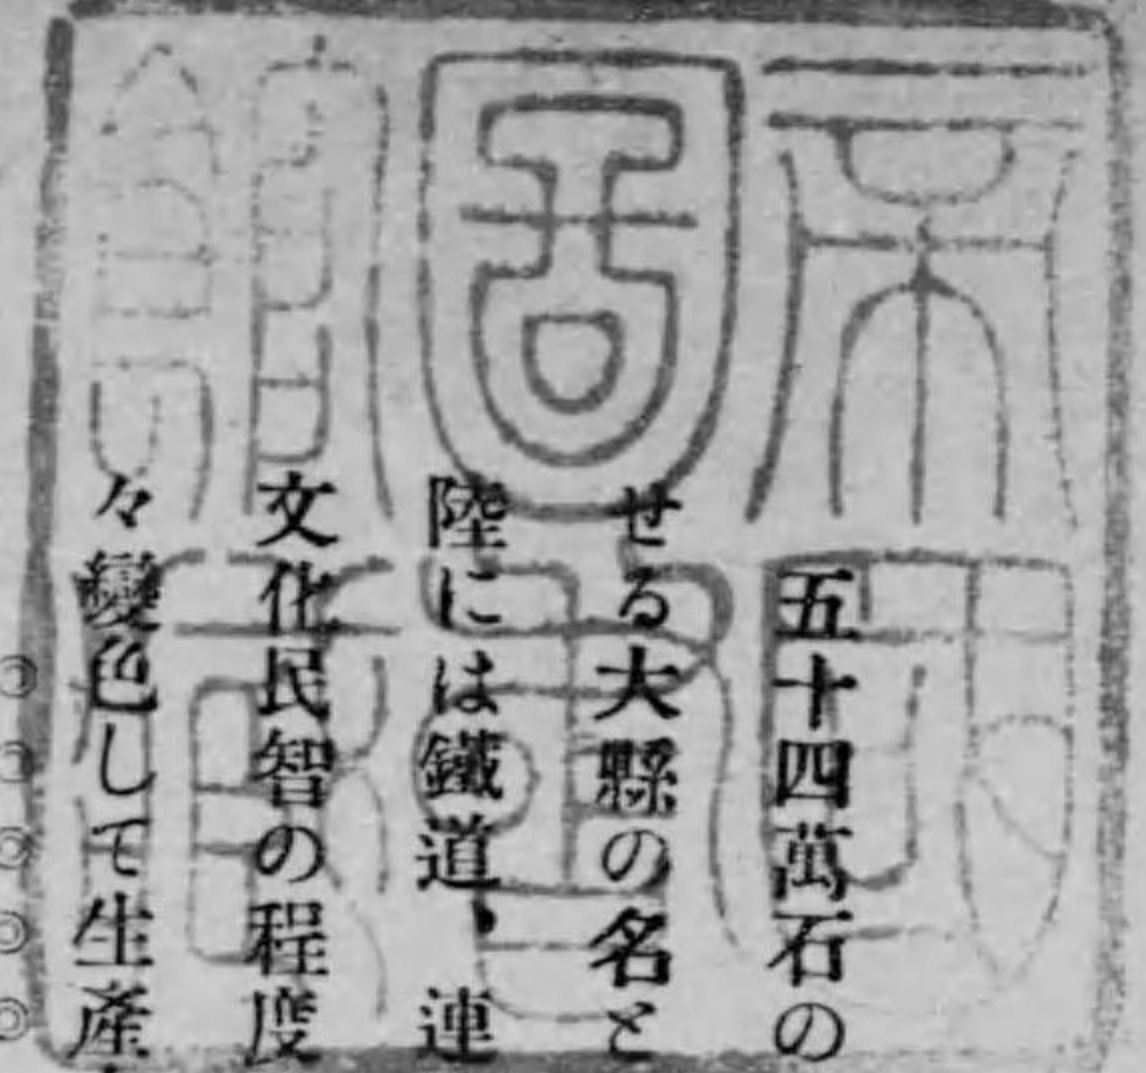 帝國
圖書
館藏
五十四萬石の
せる大縣の名と
陸には鐵道、連
文化民智の程度
々變色して生產